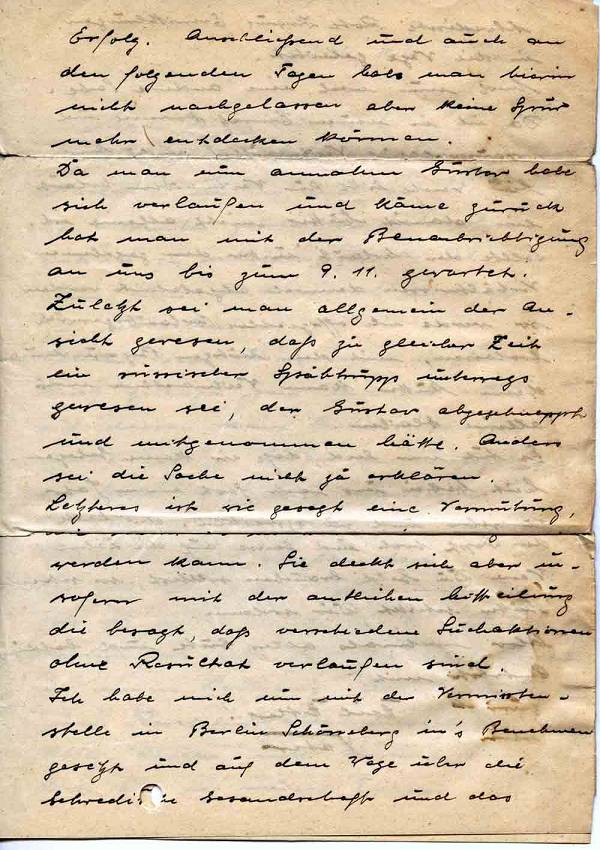 Erfolg. Anschließend und auch an
den folgenden Tagen habe man hierin
nicht nachgelassen aber keine Spur
mehr entdecken können.
Da man nun annahm Gustav habe
sich verlaufen und käme zurück
hat man mit der Benachrichtigung
an uns bis zum 9. 11. gewartet.
Zuletzt sei man allgemein der An-
sicht gewesen, daß zu gleicher Zeit
ein russischer Spähtrupp unterwegs
gewesen sei, der Gustav abgeschnappt
und mitgenommen hätte. Anders
sei die Sache nicht zu erklären.
Letzteres ist wie gesagt eine Vermutung,
werden kann. Sie deckt sich aber in-
sofern mit der amtlichen Mitteilung
die besagt, daß verschiedene Suchaktionen
ohne Resultat verlaufen sind.
Ich habe mich nun mit der Vermissten-
stelle in Berlin Schöneberg in's Benehmen
gesetzt und auf dem Wege über die
Schwedische Gesandschaft und das